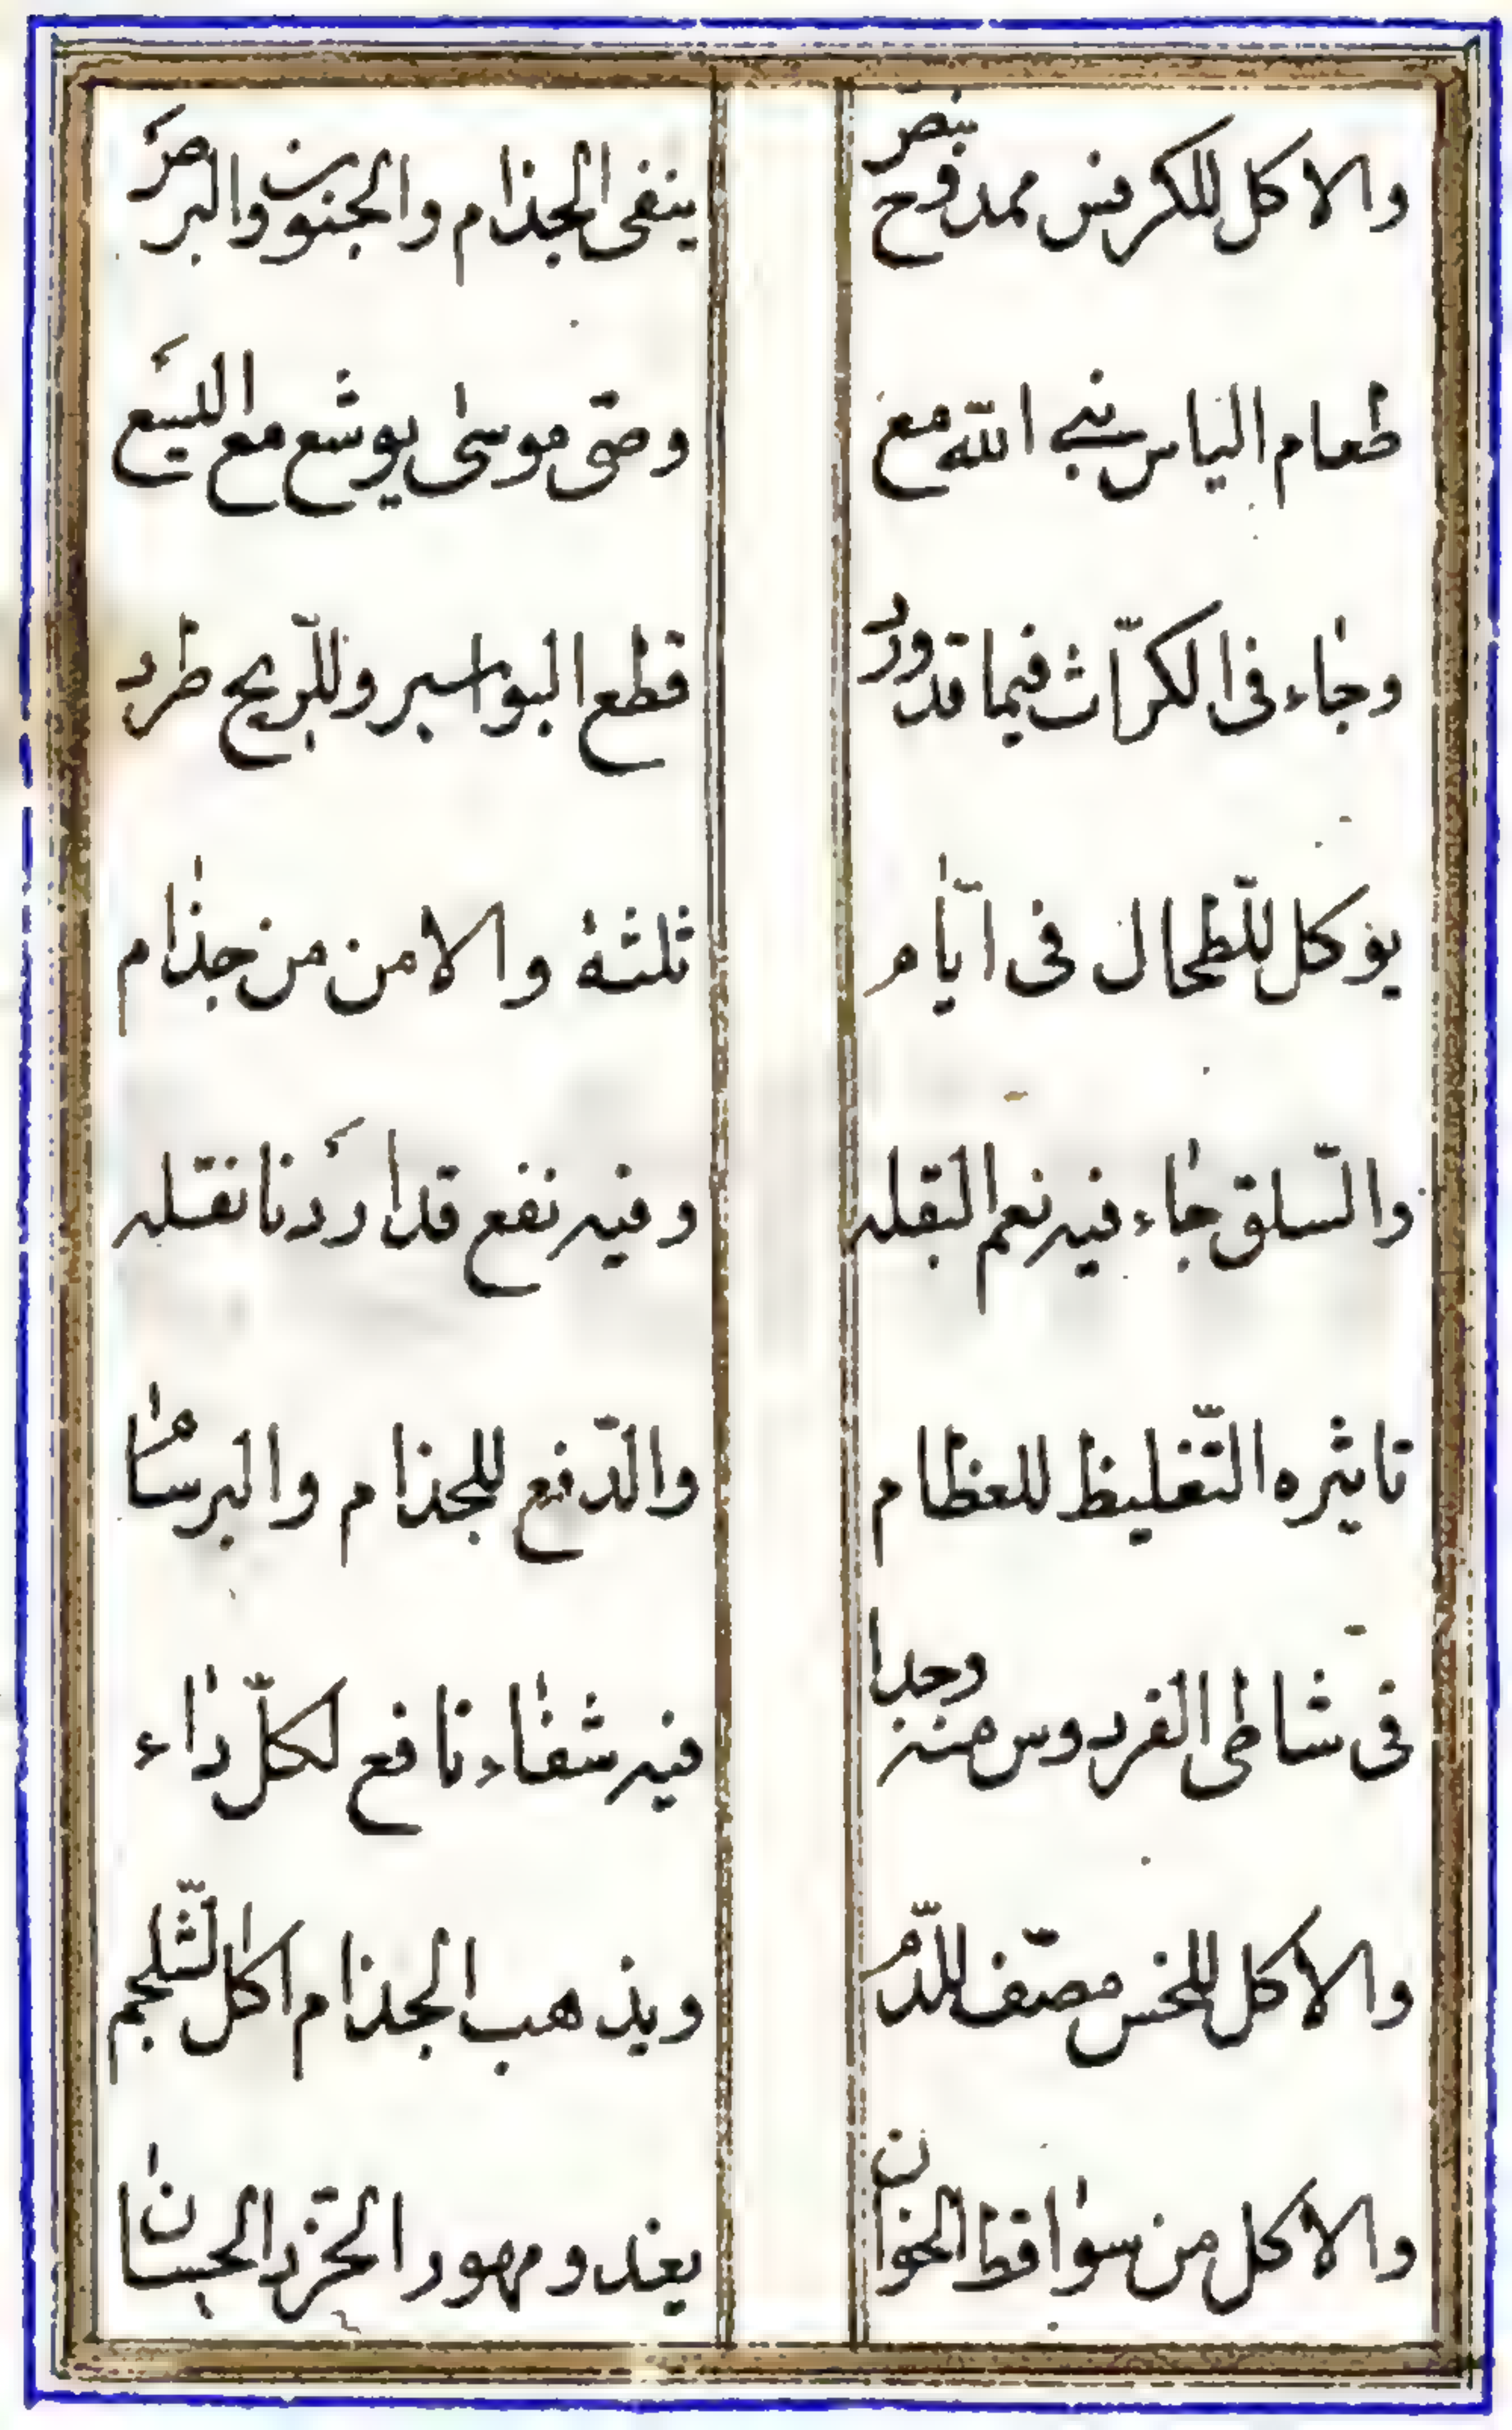 والاكل للكرفس ممدوح بنص ينفى الجذام والجنون والبرص
طعام الياس نبى الله مع وصّى موسى يوشع مع اليسع
وجاء فى الكرّاث فيما قد ورد قطع البواسير وللرّيح طرد
يؤكل للطّحال فى ايّام ثلثة والامن من جذام
والسّلق جاء فيه نعم البقله وفيه نفع قد اردنا نقله
تاثيره التّغليظ للعظام والدّفع للجذام والبرسام
فى شاطى الفردوس منه وجدا فيه شفاء نافع لكلّ داء
والاكل للخس مصّف للدّم ويذهب الجذام اكل الشّلجم
والاكل من سواقط الخوان يغدو مهور الخرّد الحسان